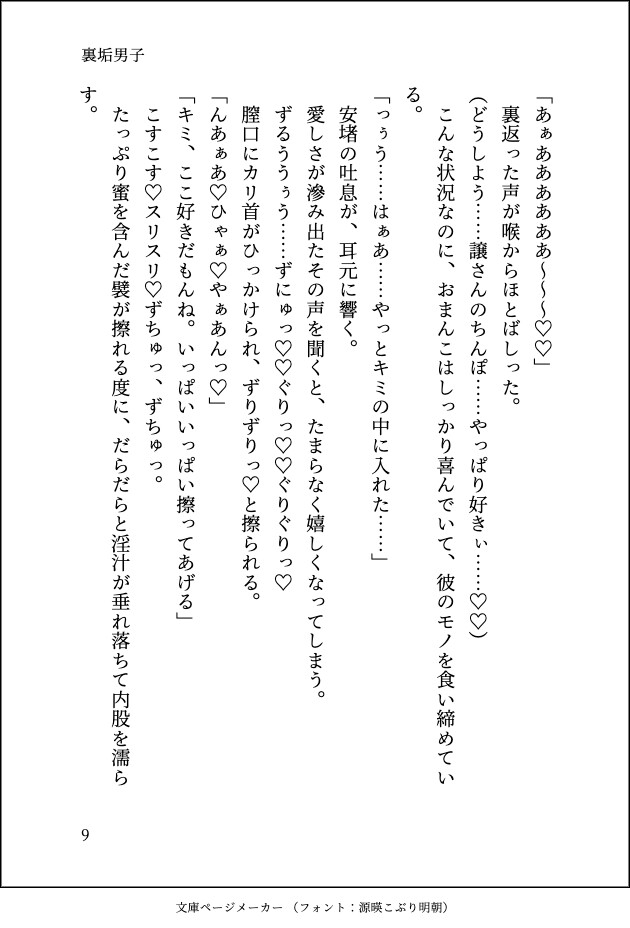 裏垢男子
「あぁああああああ～～～♡♡」
裏返った声が喉からほとばしった。
(どうしよう……譲さんのちんぽ……やっぱり好きぃ……♡♡)
こんな状況なのに、おまんこはしっかり喜んでいて、彼のモノを食い締めてい
る。
「っぅう……はぁあ……やっとキミの中に入れた……」
安堵の吐息が、耳元に響く。
愛しさが滲み出たその声を聞くと、たまらなく嬉しくなってしまう。
ずるううぅう……ずにゅっ♡♡ぐりっ♡♡ぐりぐりっ♡
膣口にカリ首がひっかけられ、ずりずりっ♡と擦られる。
「んあぁあ♡ひゃぁ♡やぁあんっ♡」
「キミ、ここ好きだもんね。いっぱいいっぱい擦ってあげる」
こすこす♡スリスリ♡ずちゅっ、ずちゅっ。
たっぷり蜜を含んだ襞が擦れる度に、だらだらと淫汁が垂れ落ちて内股を濡ら
す。
9
文庫ページメーカー（フォント：源暎こぶり明朝）